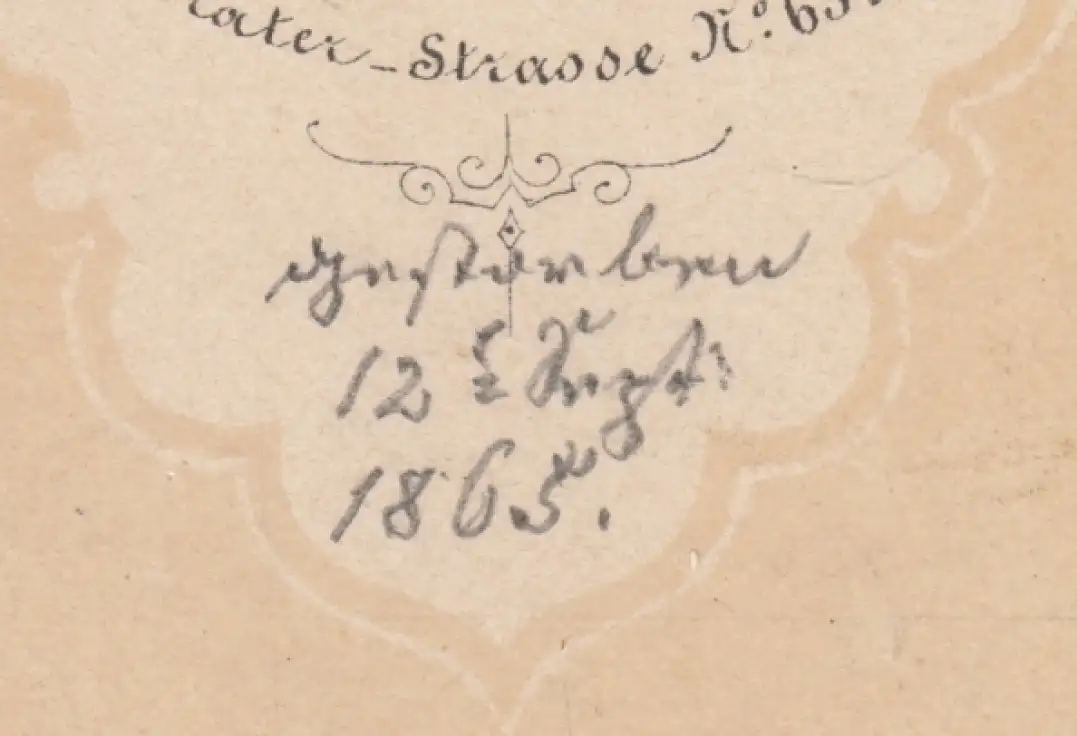 ater-Strasse Nº.
gestorben
12 t Sept:
1865.